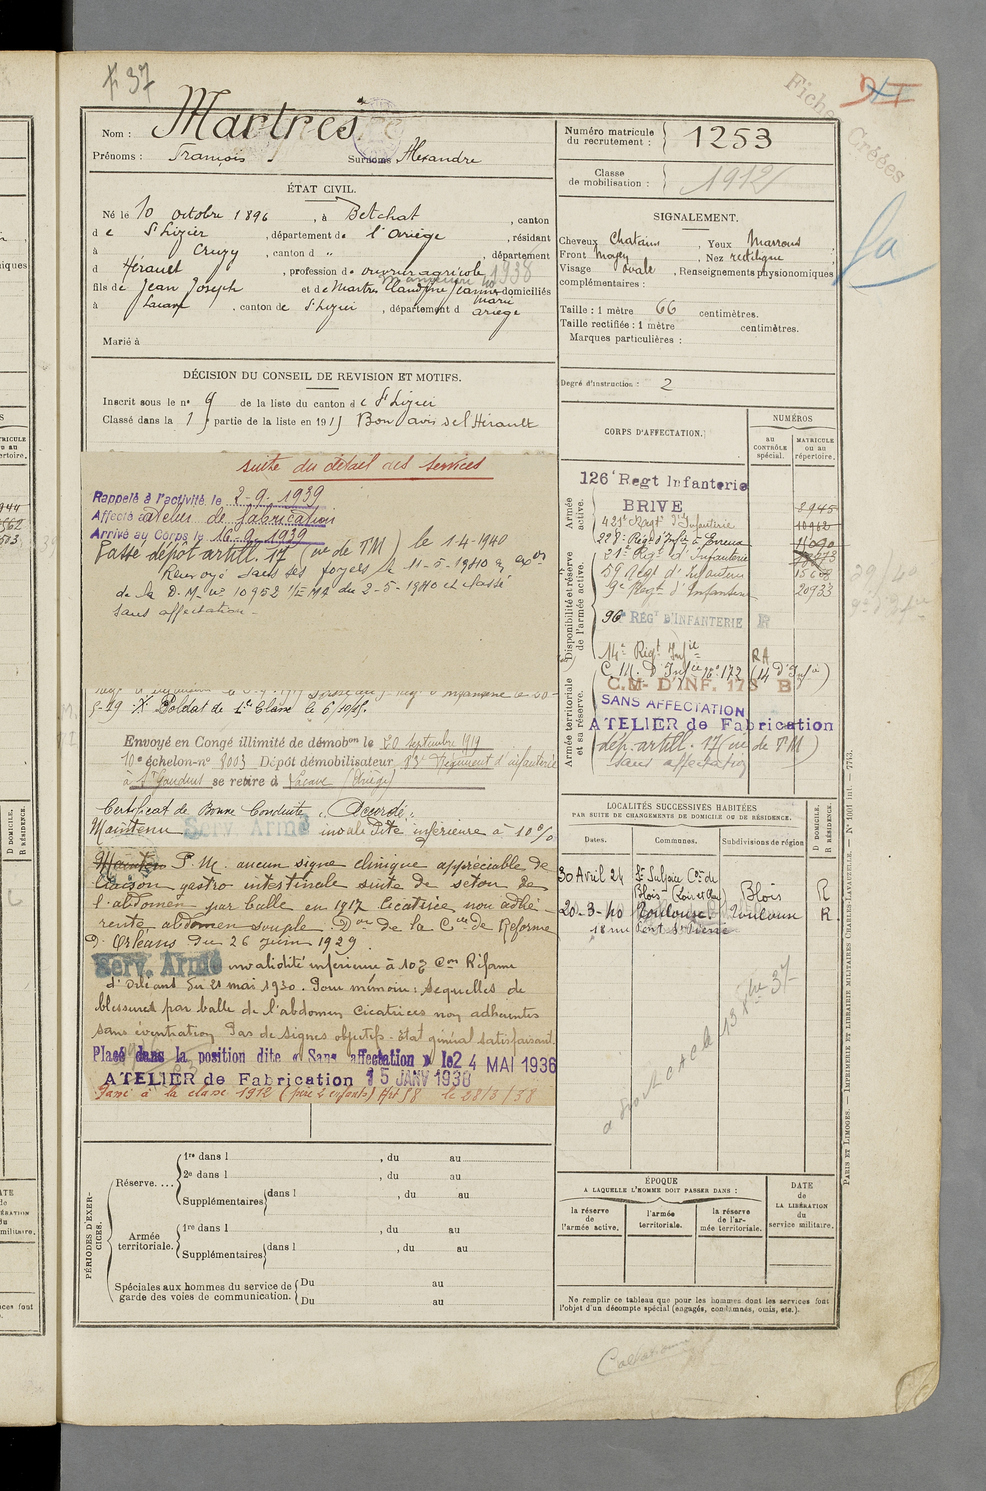 F° 37
Fiches Créées
Nom : Martres
Prénoms : François Surnoms Alexandre
Numéro matricule du recrutement : 1253
Classe de mobilisation : 1912
ÉTAT CIVIL.
Né le 10 octobre 1896, à Betchat, canton
de St Lizier, département de l'Ariège, résidant
à Cruzy, canton d ", département
d Hérault, profession de ouvrier agricole
1938
fils de Jean Joseph et de Martres Claudine Jeanne Marie domiciliés
à Lacave, canton de St Lizier, département d Ariège
Marié à
SIGNALEMENT.
Cheveux Chatains, Yeux Marrons
Front moyen, Nez rectiligne
Visage ovale, Renseignements physionomiques
complémentaires :
Taille : 1 mètre 66 centimètres.
Taille rectifiée : 1 mètre centimètres.
Marques particulières :
Degré d'instruction : 2
DÉCISION DU CONSEIL DE REVISION ET MOTIFS.
Inscrit sous le n° 9 de la liste du canton de St Lizier
Classé dans la 1 partie de la liste en 1915 Bon avis de l'Hérault
suite du détail des services
Rappelé à l'activité le 2-9-1939
Affecté atelier de fabrication
Arrivé au Corps le 16-9-1939
Passé dépôt artill. 17 (rue de TM) le 1-4-1940
Renvoyé dans ses foyers le 11-5-1940
de la D.M. n° 10952 du 2-5-1940 et classé
sans affectation-
5-19 Soldat de 1re Classe le
Envoyé en Congé illimité de démobon le 20 septembre 1919
10e échelon-n° 8003 Dépôt démobilisateur 83e Régiment d'infanterie
à St Gaudens se retire à Lacave (Ariège)
Certificat de Bonne Conduite : Accordé.
Maintenu Serv. Armé invalidité inférieure à 10%
P.M. aucun signe clinique appréciable de
liaison gastro intestinale suite de seton de
l'abdomen par balle en 1917 cicatrice non adhé-
rente, abdomen souple. Don de la Con de Réforme
d'Orléans du 26 juin 1929.
Serv. Armé invalidité inférieure à 10% Con Réforme
d'Orléans du 21 mai 1930. Pour mémoire : séquelles de
blessures par balle de l'abdomen cicatrices non adhérentes
sans éventration Pas de signes objectifs - état général satisfaisant.
Placé dans la position dite « Sans affectation » le 24 MAI 1936
ATELIER de Fabrication 15 JANV 1938
Passé à la classe 1912 (père 2 enfants) Art 58 le 28/3/38
CORPS D'AFFECTATION.
NUMÉROS
au CONTRÔLE spécial.
MATRICULE ou au répertoire.
Armée active.
Disponibilité et réserve de l'armée active.
Armée territoriale et sa réserve.
126e Regt Infanterie
BRIVE 8945
421e Regt d'Infanterie 10962
21e Regt d'Infanterie
59 Regt d'Infanterie
9e Regt d'Infanterie 20933
96e REGt D'INFANTERIE R
14e Regt Infie RA
C.M. d'Infie n° 172 (14 d'Infie)
C.M. D'INF. 173 B
SANS AFFECTATION
ATELIER de Fabrication
dép. artill. 17 (rue de TM)
sans affectation
LOCALITÉS SUCCESSIVES HABITÉES
PAR SUITE DE CHANGEMENTS DE DOMICILE OU DE RÉSIDENCE.
Dates. Communes. Subdivisions de région
D DOMICILE. R RÉSIDENCE.
30 Avril 24 St Sulpice Con de Blois (Loir et Cher) Blois R
20-3-40 Toulouse Toulouse R
18 rue Pont St Pierre
ÉPOQUE
A LAQUELLE L'HOMME DOIT PASSER DANS :
la réserve de l'armée active.
l'armée territoriale.
la réserve de l'armée territoriale.
DATE de LA LIBÉRATION du service militaire.
Ne remplir ce tableau que pour les hommes dont les services font
l'objet d'un décompte spécial (engagés, condamnés, omis, etc.).
PÉRIODES D'EXERCICES.
Réserve. ... 1re dans l , du au
2e dans l , du au
Supplémentaires dans l , du au
Armée territoriale. 1re dans l , du au
Supplémentaires dans l , du au
Spéciales aux hommes du service de garde des voies de communication. Du au
Du au
PARIS ET LIMOGES. — IMPRIMERIE ET LIBRAIRIE MILITAIRES CHARLES-LAVAUZELLE. — N° 1001 int. — 7743.